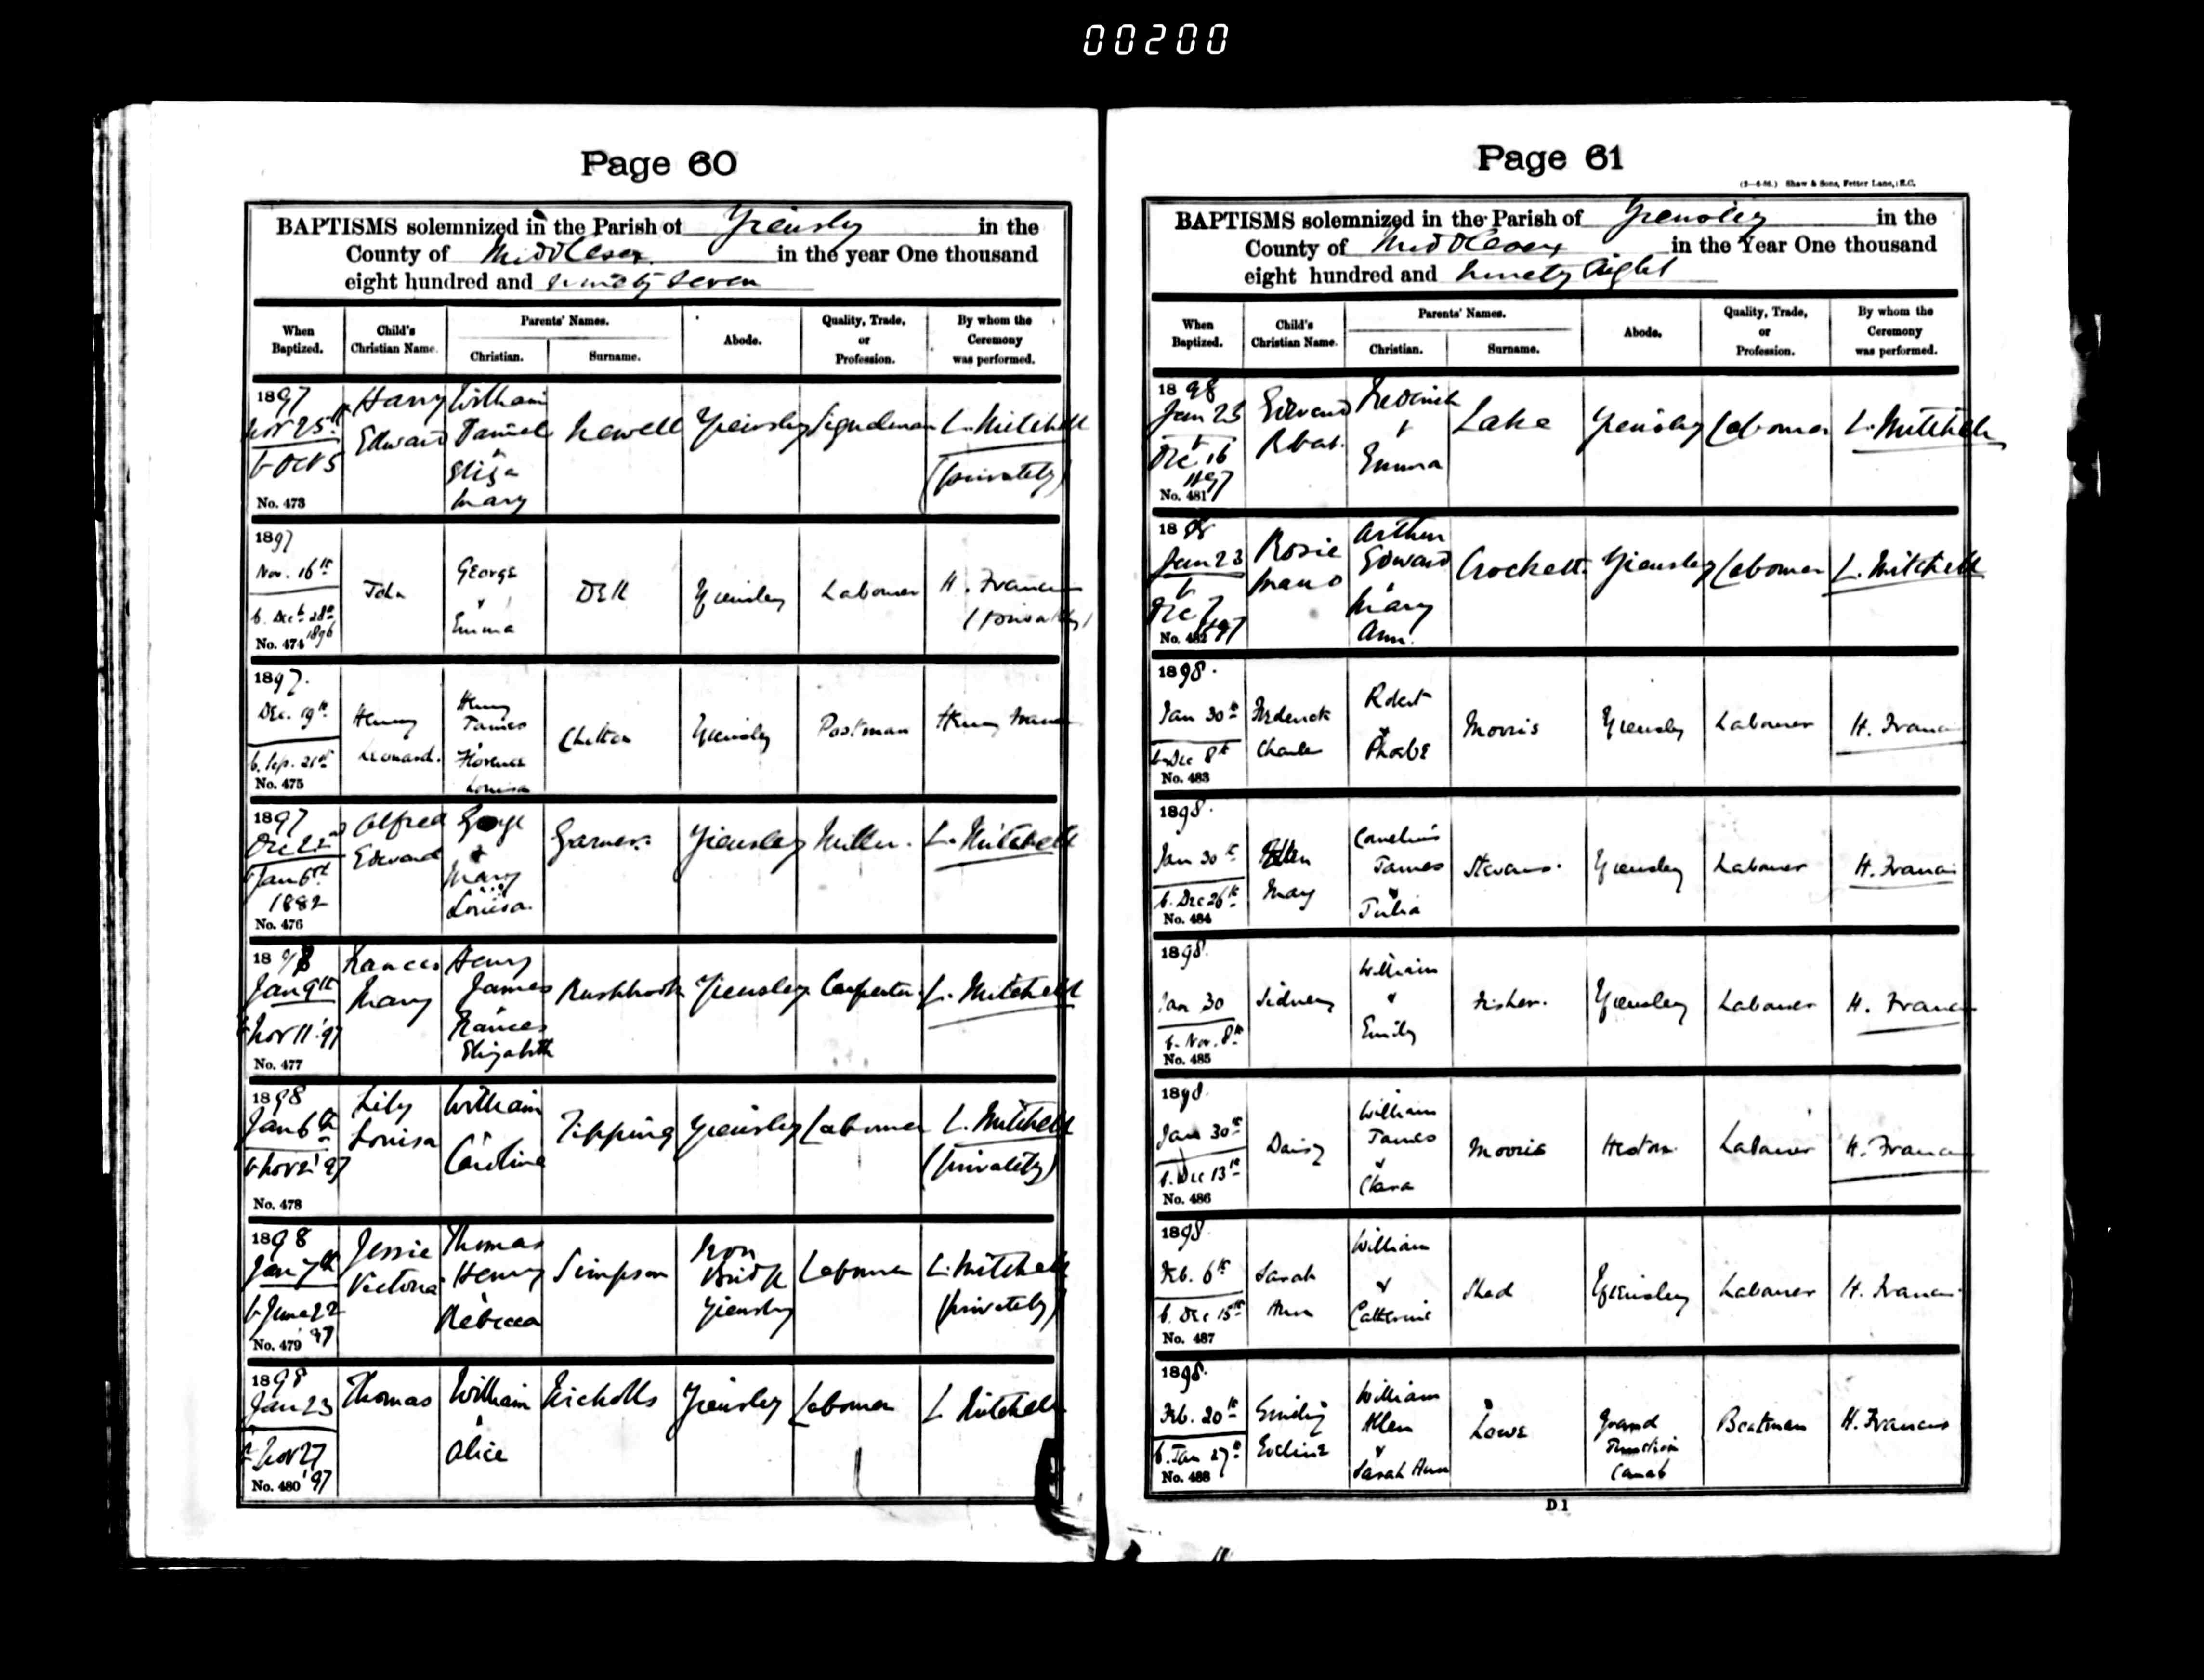 00200
Page 60
BAPTISMS solemnized in the Parish of Yiewsley in the
County of Middlesex in the year One thousand
eight hundred and ninety seven
When Baptized. Child's Christian Name. Parents' Names. Christian. Surname. Abode. Quality, Trade, or Profession. By whom the Ceremony was performed.
1897 Nov 25th b Oct 5 No. 473 Harry Edward William Daniel & Eliza Mary Newell Yiewsley Signalman L. Mitchell (privately)
1897 Nov. 16th b. Dec 28th 1896 No. 474 John George & Emma Dell Yiewsley Labourer H. Francis (privately)
1897. Dec. 19th b. Sep. 21st No. 475 Henry Leonard. Henry James & Florence Louisa Yiewsley Postman Henry Francis
1897 Dec 22nd b Jan 6th 1882 No. 476 Alfred Edward George & Mary Louisa. Garner Yiewsley Miller. L. Mitchell
1898 Jan 9th b Nov 11 '97 No. 477 Frances Mary Henry James & Frances Elizabeth Rushbrook Yiewsley Carpenter. L. Mitchell
1898 Jan 6th b Nov 21 '97 No. 478 Lily Louisa William & Caroline Tipping Yiewsley Labourer L. Mitchell (privately)
1898 Jan 7th b June 22 '97 No. 479 Jessie Victoria Thomas Henry & Rebecca Simpson Iron Bridge Yiewsley Labourer L. Mitchell (privately)
1898 Jan 23 b Nov 27 '97 No. 480 Thomas William & Alice Nicholls Yiewsley Labourer L Mitchell
Page 61
(2—6-86.) Shaw & Sons, Fetter Lane, E.C.
BAPTISMS solemnized in the Parish of Yiewsley in the
County of Middlesex in the Year One thousand
eight hundred and ninety eight
When Baptized. Child's Christian Name. Parents' Names. Christian. Surname. Abode. Quality, Trade, or Profession. By whom the Ceremony was performed.
1898 Jan 23 b Dec 16 1897 No. 481 Edward Robert. Frederick & Emma Lake Yiewsley Labourer L. Mitchell
1898 Jan 23 b Dec 7 1897 No. 482 Rosie Maud Arthur Edward & Mary Ann. Crockett Yiewsley Labourer L. Mitchell
1898. Jan 30th b. Dec 8th No. 483 Frederick Charles Robert & Phoebe Morris Yiewsley Labourer H. Francis
1898. Jan 30th b. Dec 26th No. 484 Ellen Mary Cornelius James & Julia Stevens. Yiewsley Labourer H. Francis
1898 Jan 30 b. Nov. 8th No. 485 Sidney William & Emily Fisher. Yiewsley Labourer H. Francis
1898 Jan 30th b. Dec 13th No. 486 Daisy William James & Clara Morris Heston Labourer H. Francis
1898 Feb. 6th b. Dec 15th No. 487 Sarah Ann William & Catherine Shed Yiewsley Labourer H. Francis
1898. Feb. 20th b. Jan 27th No. 488 Emily Eveline William Allen & Sarah Ann Lowe Grand Junction Canal Boatman H. Francis
D 1